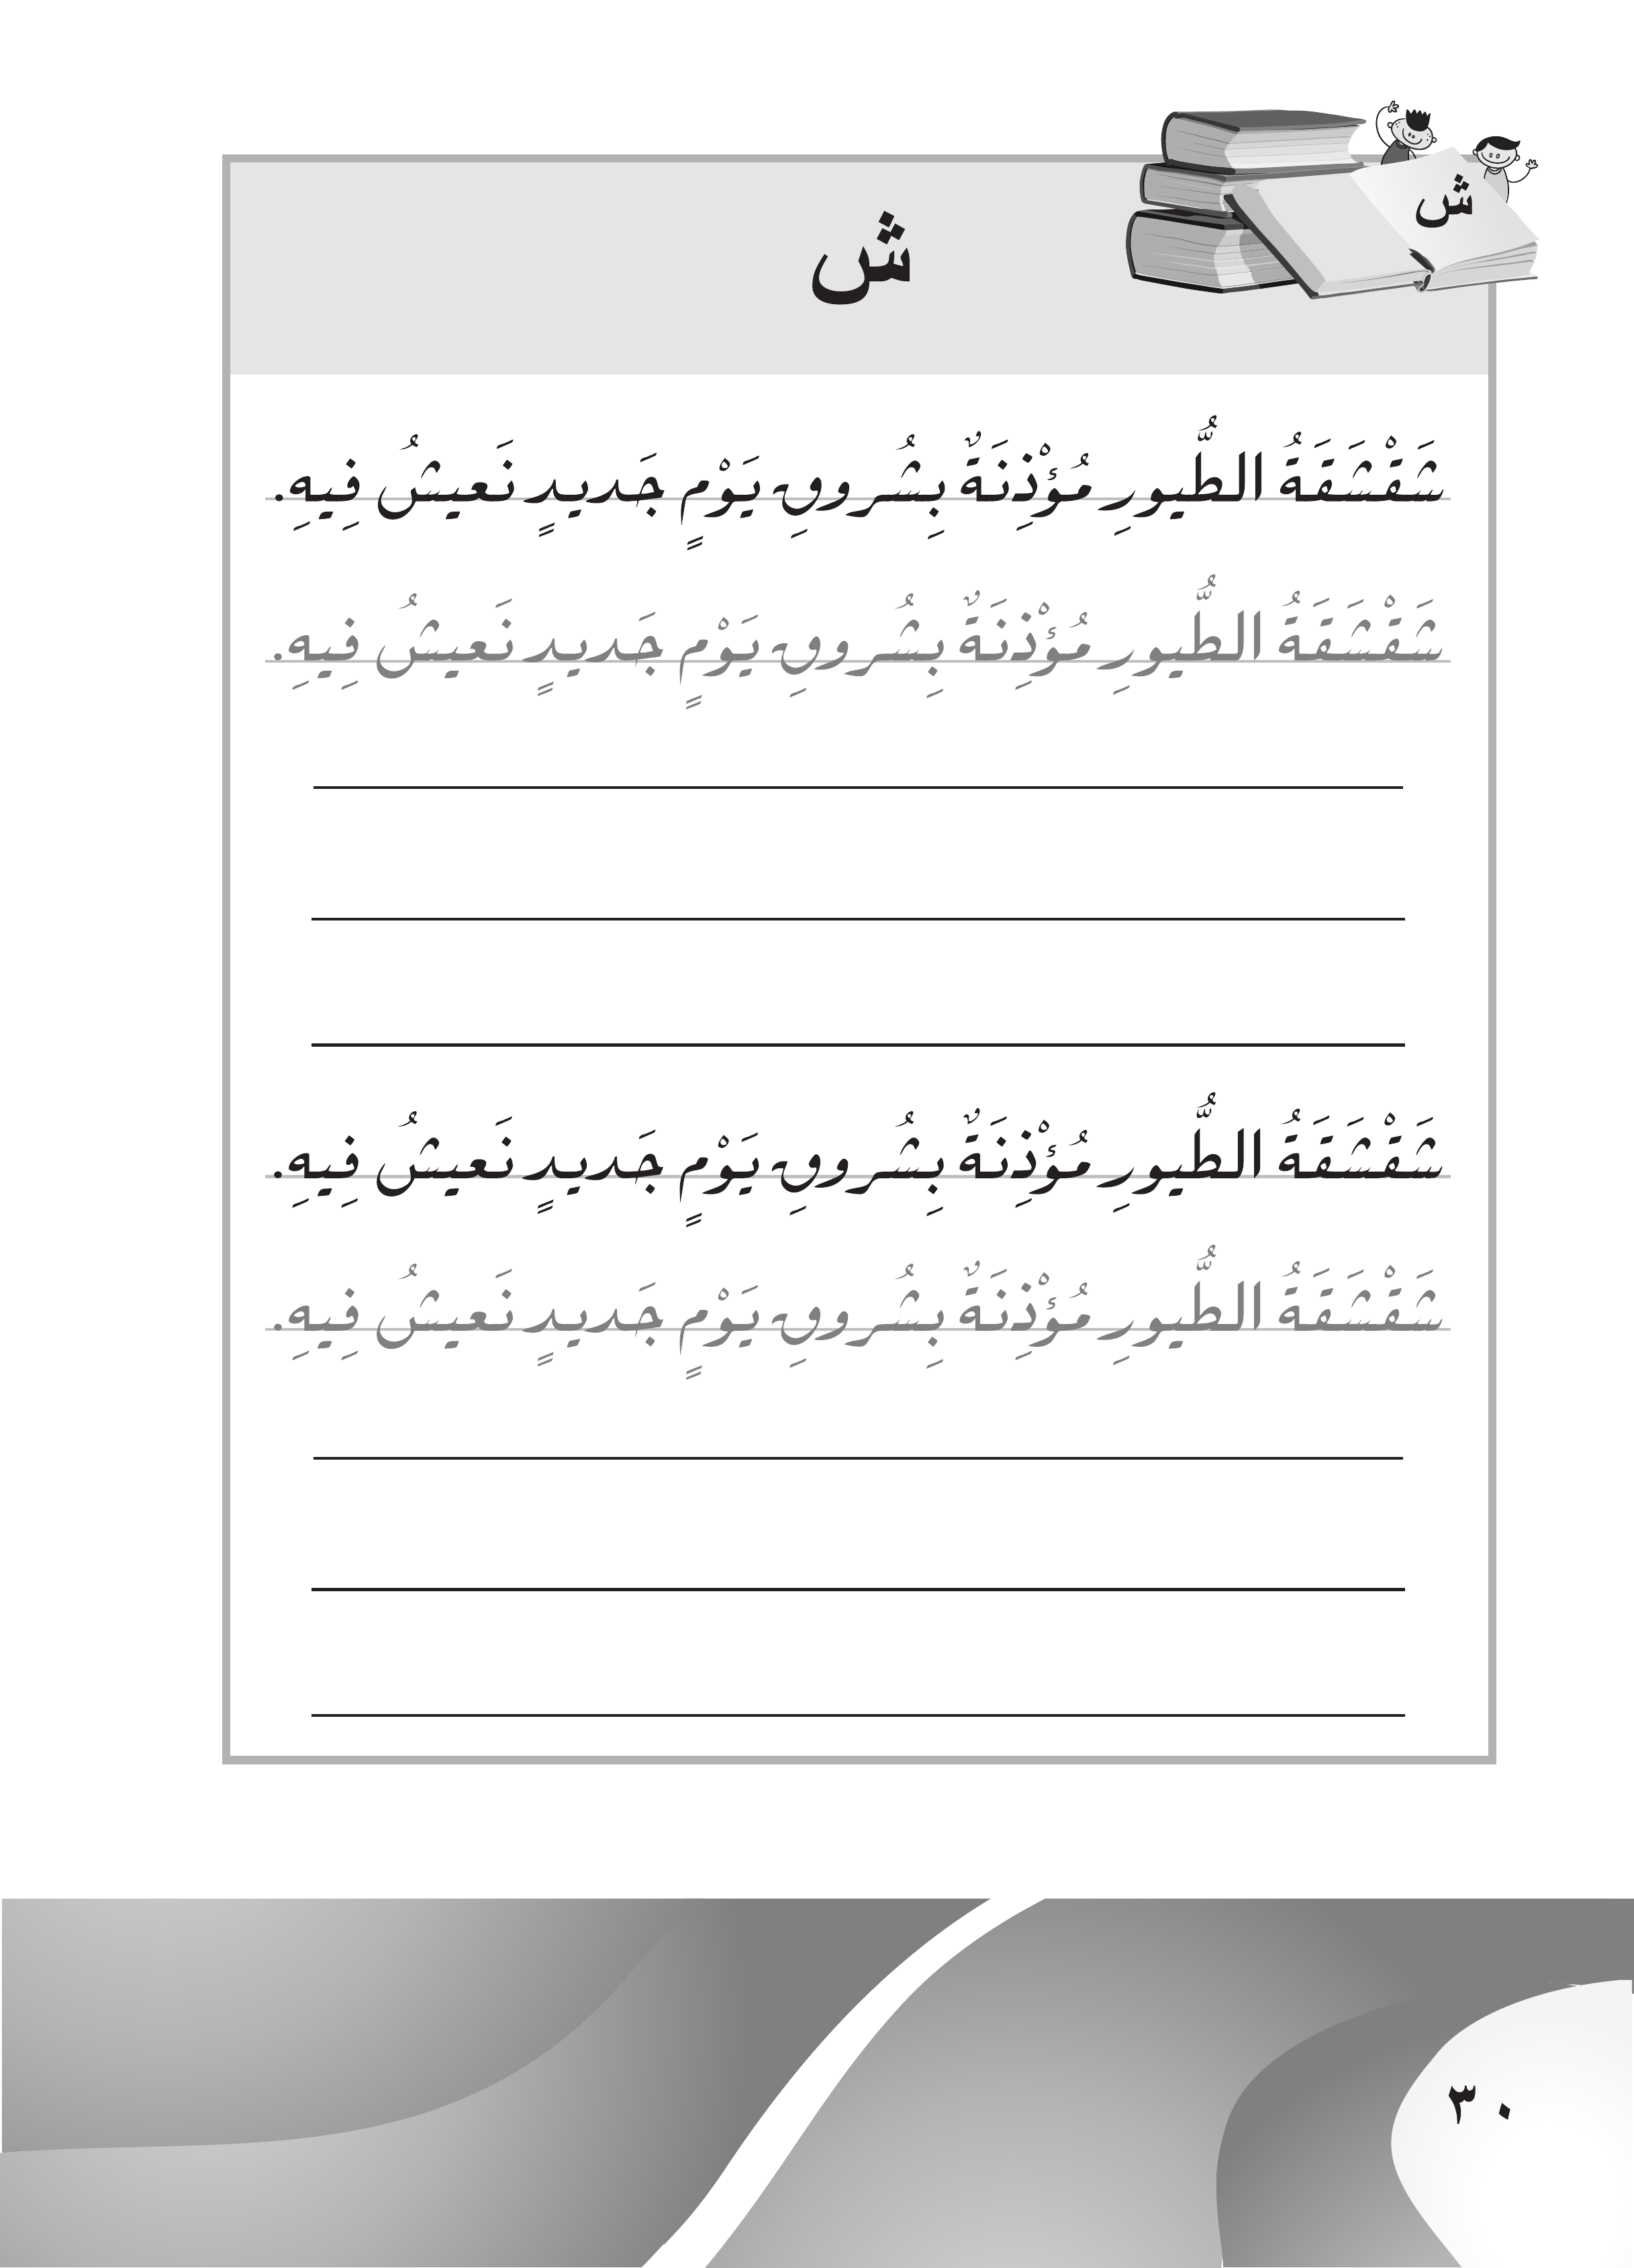 ش
ش
شَقْشَقَةُ الطُّيورِ مُؤْذِنَةٌ بِشُروقِ يَوْمٍ جَديدٍ نَعيشُ فِيهِ.
شَقْشَقَةُ الطُّيورِ مُؤْذِنَةٌ بِشُروقِ يَوْمٍ جَديدٍ نَعيشُ فِيهِ.
شَقْشَقَةُ الطُّيورِ مُؤْذِنَةٌ بِشُروقِ يَوْمٍ جَديدٍ نَعيشُ فِيهِ.
شَقْشَقَةُ الطُّيورِ مُؤْذِنَةٌ بِشُروقِ يَوْمٍ جَديدٍ نَعيشُ فِيهِ.
٣٠